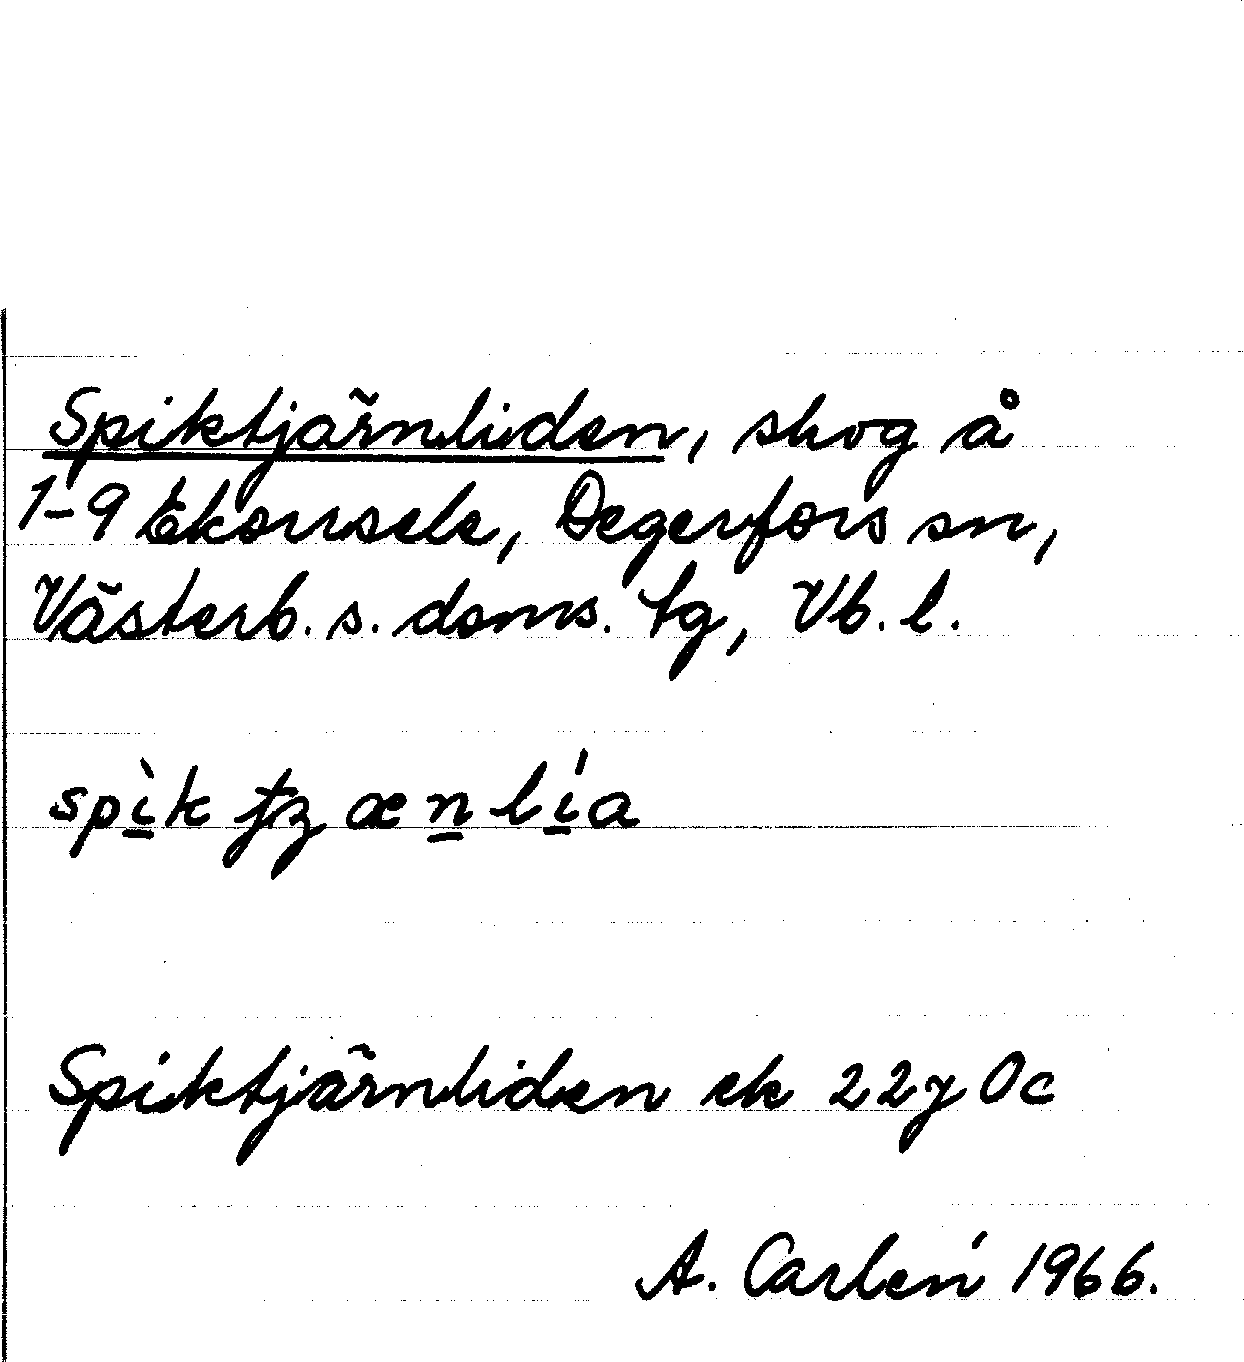 Spiktjärnliden, skog å
1-9 Ekorrsele, Degerfors sn,
Västerb. s. doms. tg, Vb. l.
Spiktjärnliden ek 22J 0c
A. Carlén 1966.